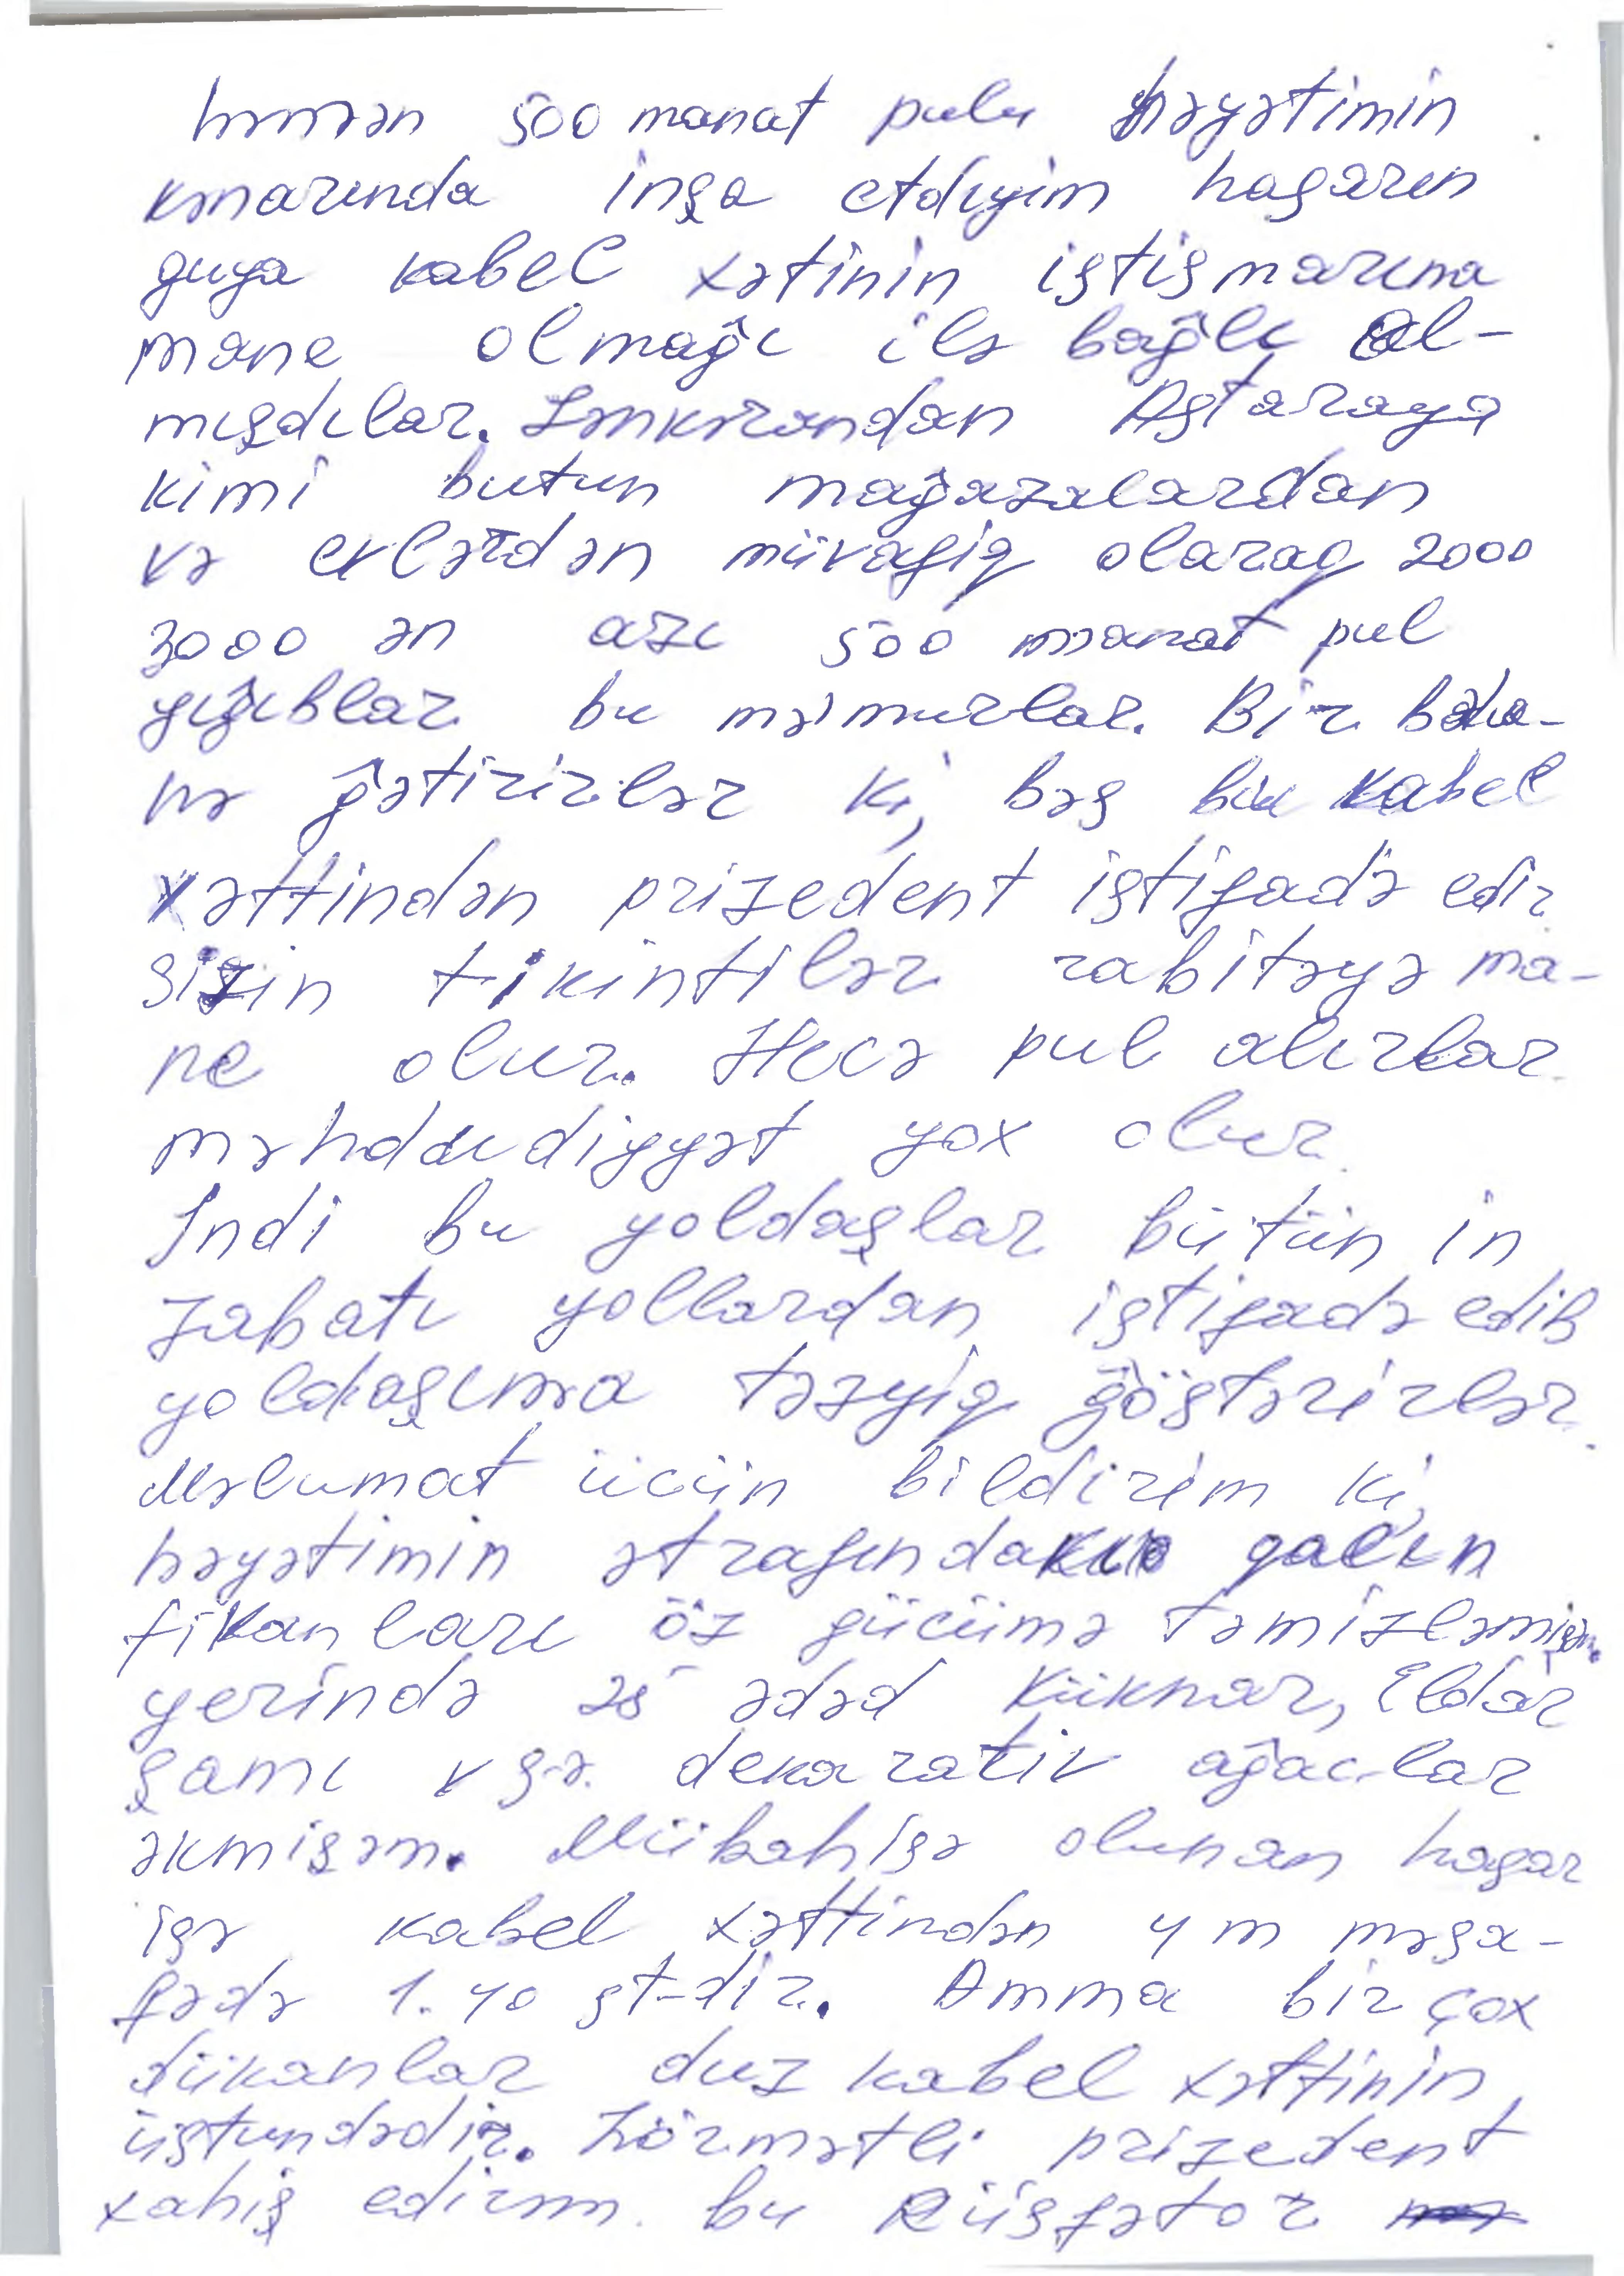 həmən 500 manat pulu həyətimin
kənarında inşa etdiyim hasarın
guya kabel xətinin istismarına
mane olmağı ilə bağlı al-
mışdılar. Lənkərandan Astaraya
kimi butun mağazalardan
və evlərdən müvafiq olaraq 2000
3000 ən azı 500 manat pul
yığıblar bu məmurlar. Bir baha-
nə gətirirlər ki, bəs bu kabel
xəttindən prizedent istifadə edir
sizin tikintilər rabitəyə ma-
ne olur. Elecə pul alırlar
məhdudiyyət yox olur.
İndi bu yoldaşlar bütün in
zabatı yollardan istifadə edib
yoldaşıma təzyiq göstərirlər.
Məlumat üçün bildirim ki,
həyətimin ətrafındakı qalın
tikanları öz gücümə təmizləmişəm.
yerində 25 ədəd küknar, Eldar
şamı v s-ə. dekarativ ağaclar
əkmişəm. Mübahisə olunan hasar
isə kabel xəttindən 4 m məsa-
fədə 1.40 st-dir. Amma bir çox
dükanlar duz kabel xəttinin
üstundədir. Hörmətli prizedent
xahiş edirəm bu Rüsfətor